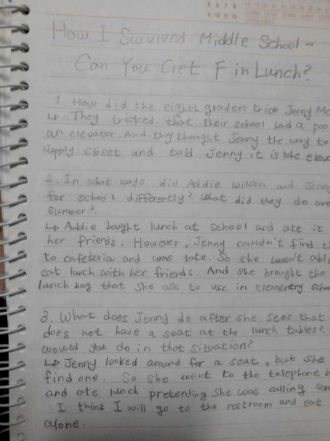 How I Survived Middle School -
Can You Get F in Lunch?
1. How did the eighth graders trick Jenny Mc
↳ They tricked that their school had a poo
or elevator. And they thought Jenny the way to
supply closet and told Jenny it is the eleva
2. In what ways did Addie wilson and Jenny
for school differently? What did they do over
summer?
↳ Addie bought lunch at school and ate it
her friends. However, Jenny couldn't find th
to cafeteria and was late. So she wasn't abl
eat lunch with her friends. And she brought the
lunch bag that she use to use in elementry school
3. What does Jenny do after she sees that
does not have a seat at the lunch tables?
would you do in that situation?
↳ Jenny looked around for a seat, but she
find one. So she went to the telephone b
and ate lunch pretenting she was calling som
I think I will go to the restroom and eat
alone.